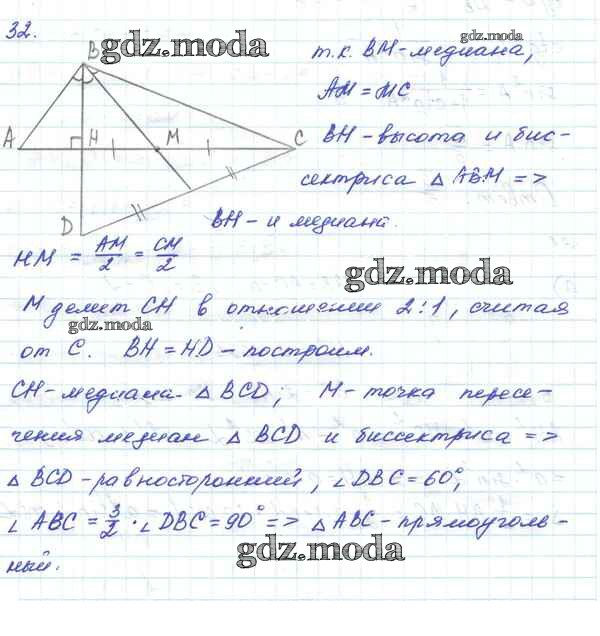 32.
gdz.moda
т.к. BM-медиана,
AM = MC
BH-высота и бис-
сектриса △ ABM =>
BH - и медиана.
B
A
H
M
C
D
HM = AM/2 = CM/2
gdz.moda
M делит CH в отношении 2:1, считая
gdz.moda
от C. BH = HD - построим.
CH-медиана △ BCD; M-точка пересе-
чения медиан △ BCD и биссектриса =>
△ BCD - равносторонний, ∠DBC = 60°,
∠ABC = 3/2 · ∠DBC = 90° => △ABC - прямоуголь-
gdz.moda
ный.